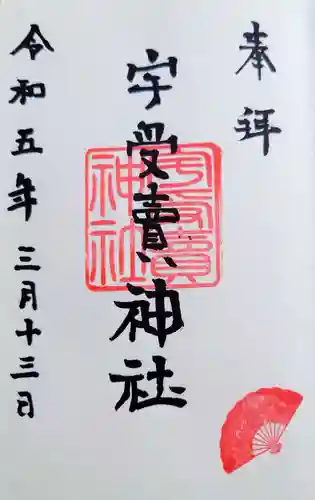 奉拝
宇受賣神社
宇受賣神社
令和五年三月十三日